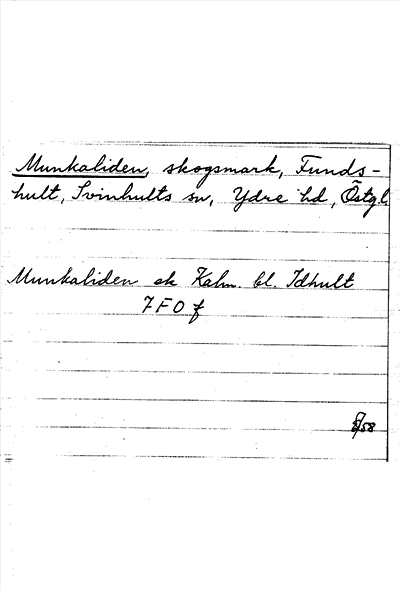 Munkaliden, skogsmark, Funds-
hult, Svinhults sn, Ydre hd, Östgl.
Munkaliden ek Kalm. bl. Idhult
7 F 0 f